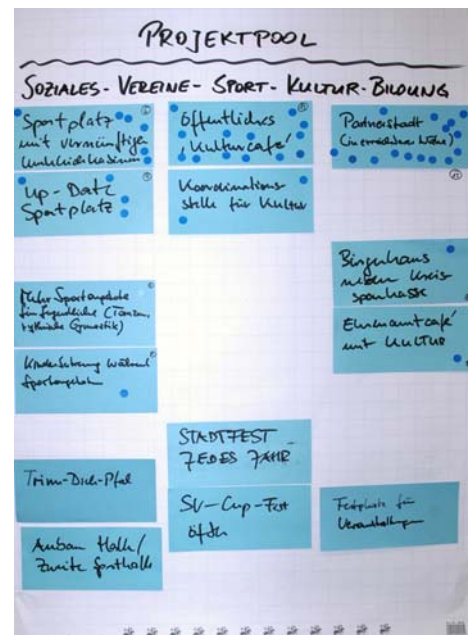 PROJEKTPOOL
SOZIALES - VEREINE - SPORT - KULTUR - BILDUNG
Sportplatz
mit vernünftigen
Umkleidekabinen
Up-Date
Sportplatz
Mehr Sportangebote
für Jugendliche (Tanzen,
rythmische Gymnastik)
Kinderbetreuung während
Sportangebote
Trimm-Dich-Pfad
Anbau Halle/
Zweite Sporthalle
Öffentliches
'Kulturcafé'
Koordinations
stelle für Kultur
STADTFEST
JEDES JAHR
SV-Cup-Fest
öfter
Partnerstadt
(in erreichbarer Nähe)
Bürgerhaus
neben Kreis
sparkasse
Ehrenamtcafé
mit KULTUR
Festplatz für
Veranstaltungen